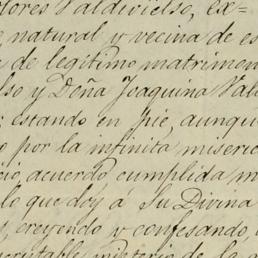 lores Valdivielso, ex=
natural y vecina de es
de legitimo matrimon
lso y Deña Joaquina Val
estando en pie, aunqu
por la infinita miseric
cio, acuerdo cumplida m
lo que doy á Su Divina
creyendo y confesando,
misterio de la